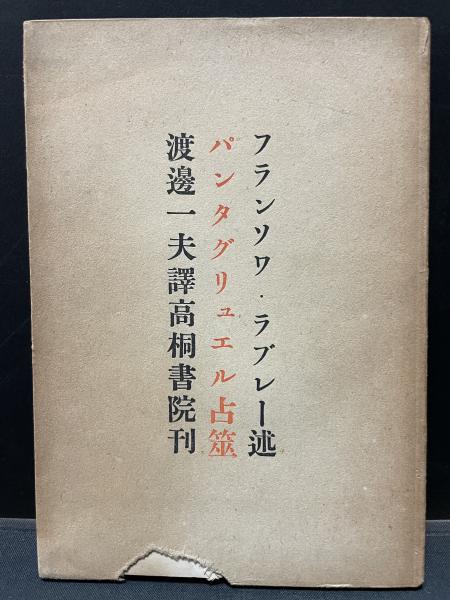 フランソワ・ラブレー述
パンタグリュエル占筮
渡邊一夫譯高桐書院刊